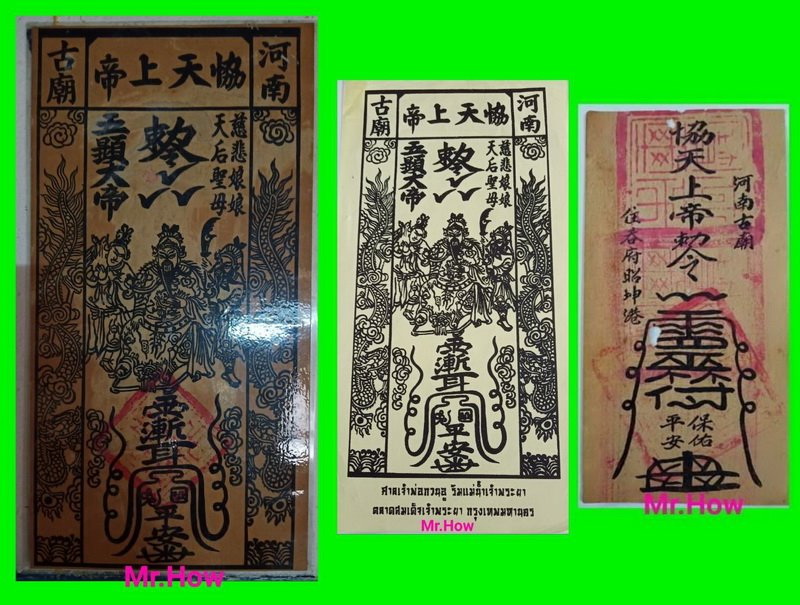 古廟
帝上天協
河南
五顯大帝
敕令
天后聖母
慈悲娘娘
平安
Mr.How
古廟
帝上天協
河南
五顯大帝
敕令
天后聖母
慈悲娘娘
平安
ศาลเจ้าพ่อกวนอู ริมแม่น้ำเจ้าพระยา
ตลาดสมเด็จเจ้าพระยา กรุงเทพมหานคร
Mr.How
河南古廟
協天上帝敕令
保佑
平安
Mr.How